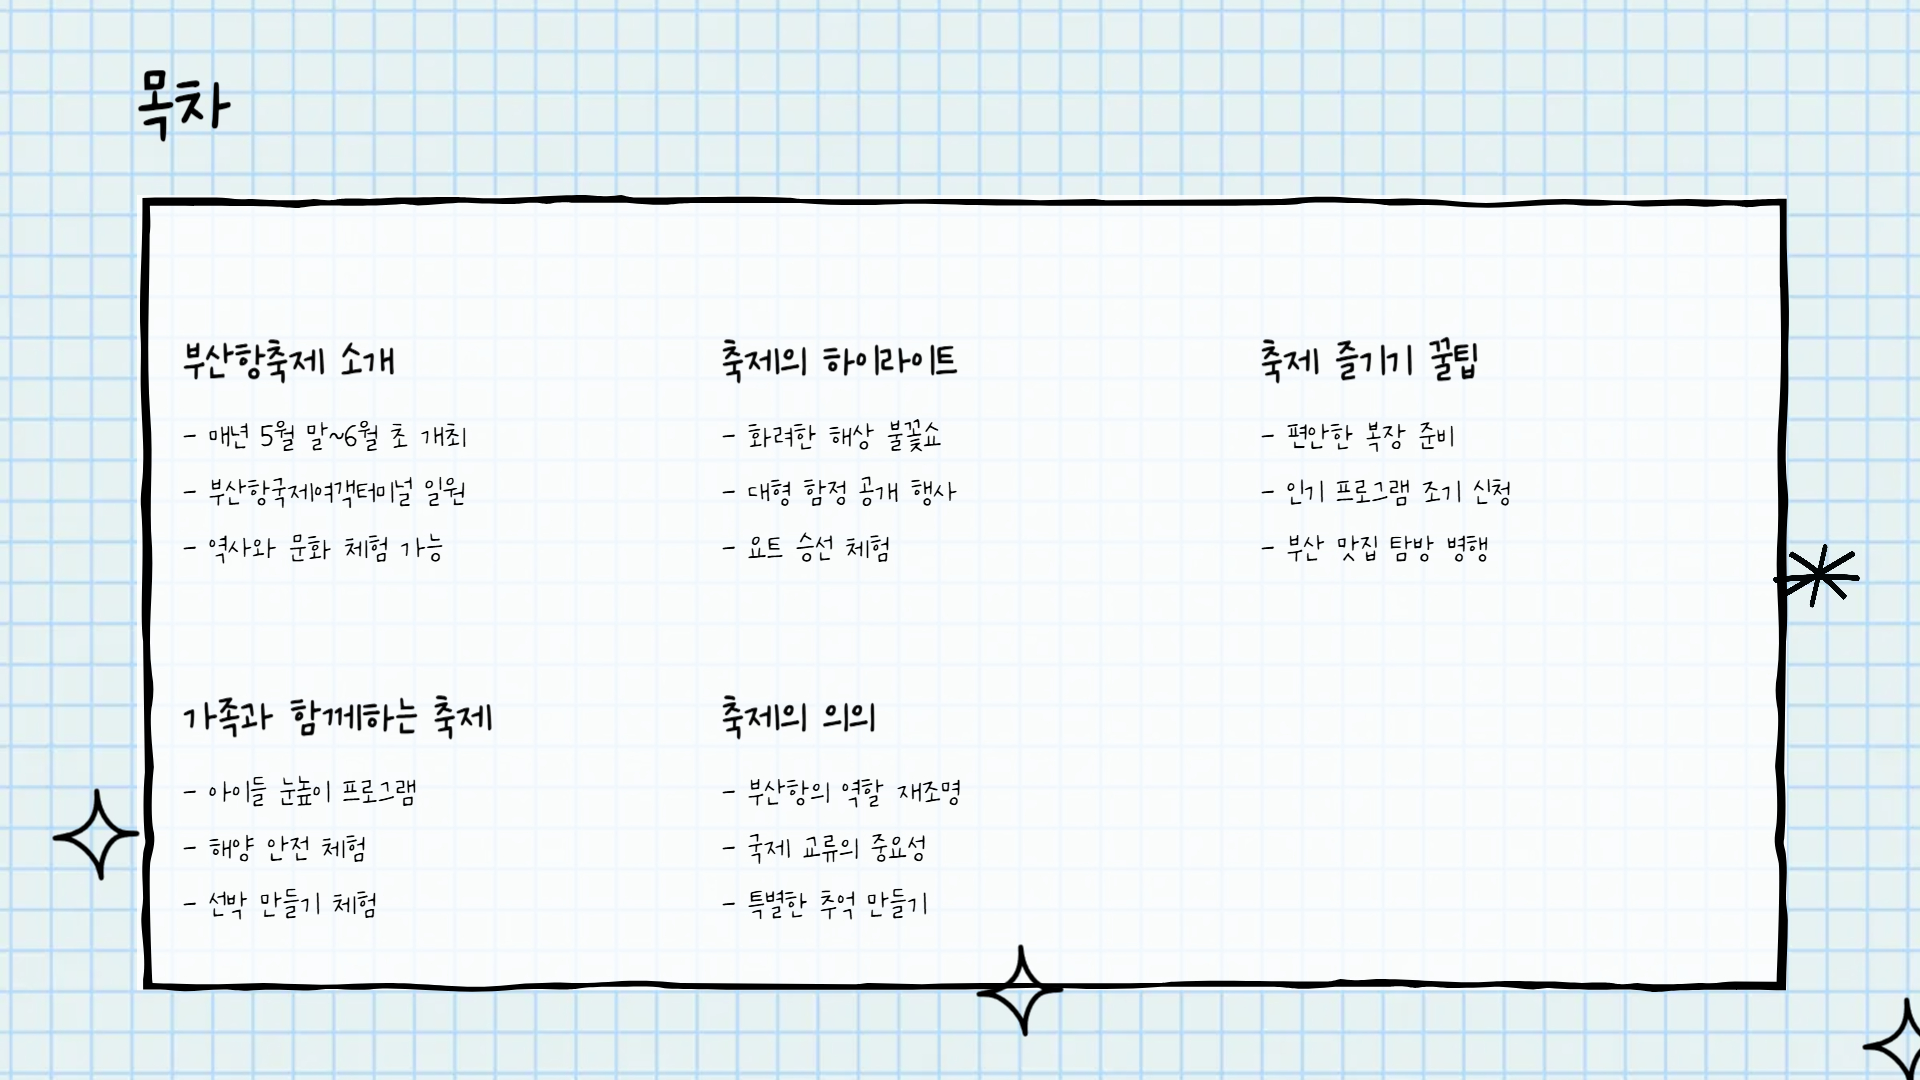 목차
부산항축제 소개
- 매년 5월 말~6월 초 개최
- 부산항국제여객터미널 일원
- 역사와 문화 체험 가능
축제의 하이라이트
- 화려한 해상 불꽃쇼
- 대형 함정 공개 행사
- 요트 승선 체험
축제 즐기기 꿀팁
- 편안한 복장 준비
- 인기 프로그램 조기 신청
- 부산 맛집 탐방 병행
가족과 함께하는 축제
- 아이들 눈높이 프로그램
- 해양 안전 체험
- 선박 만들기 체험
축제의 의의
- 부산항의 역할 재조명
- 국제 교류의 중요성
- 특별한 추억 만들기